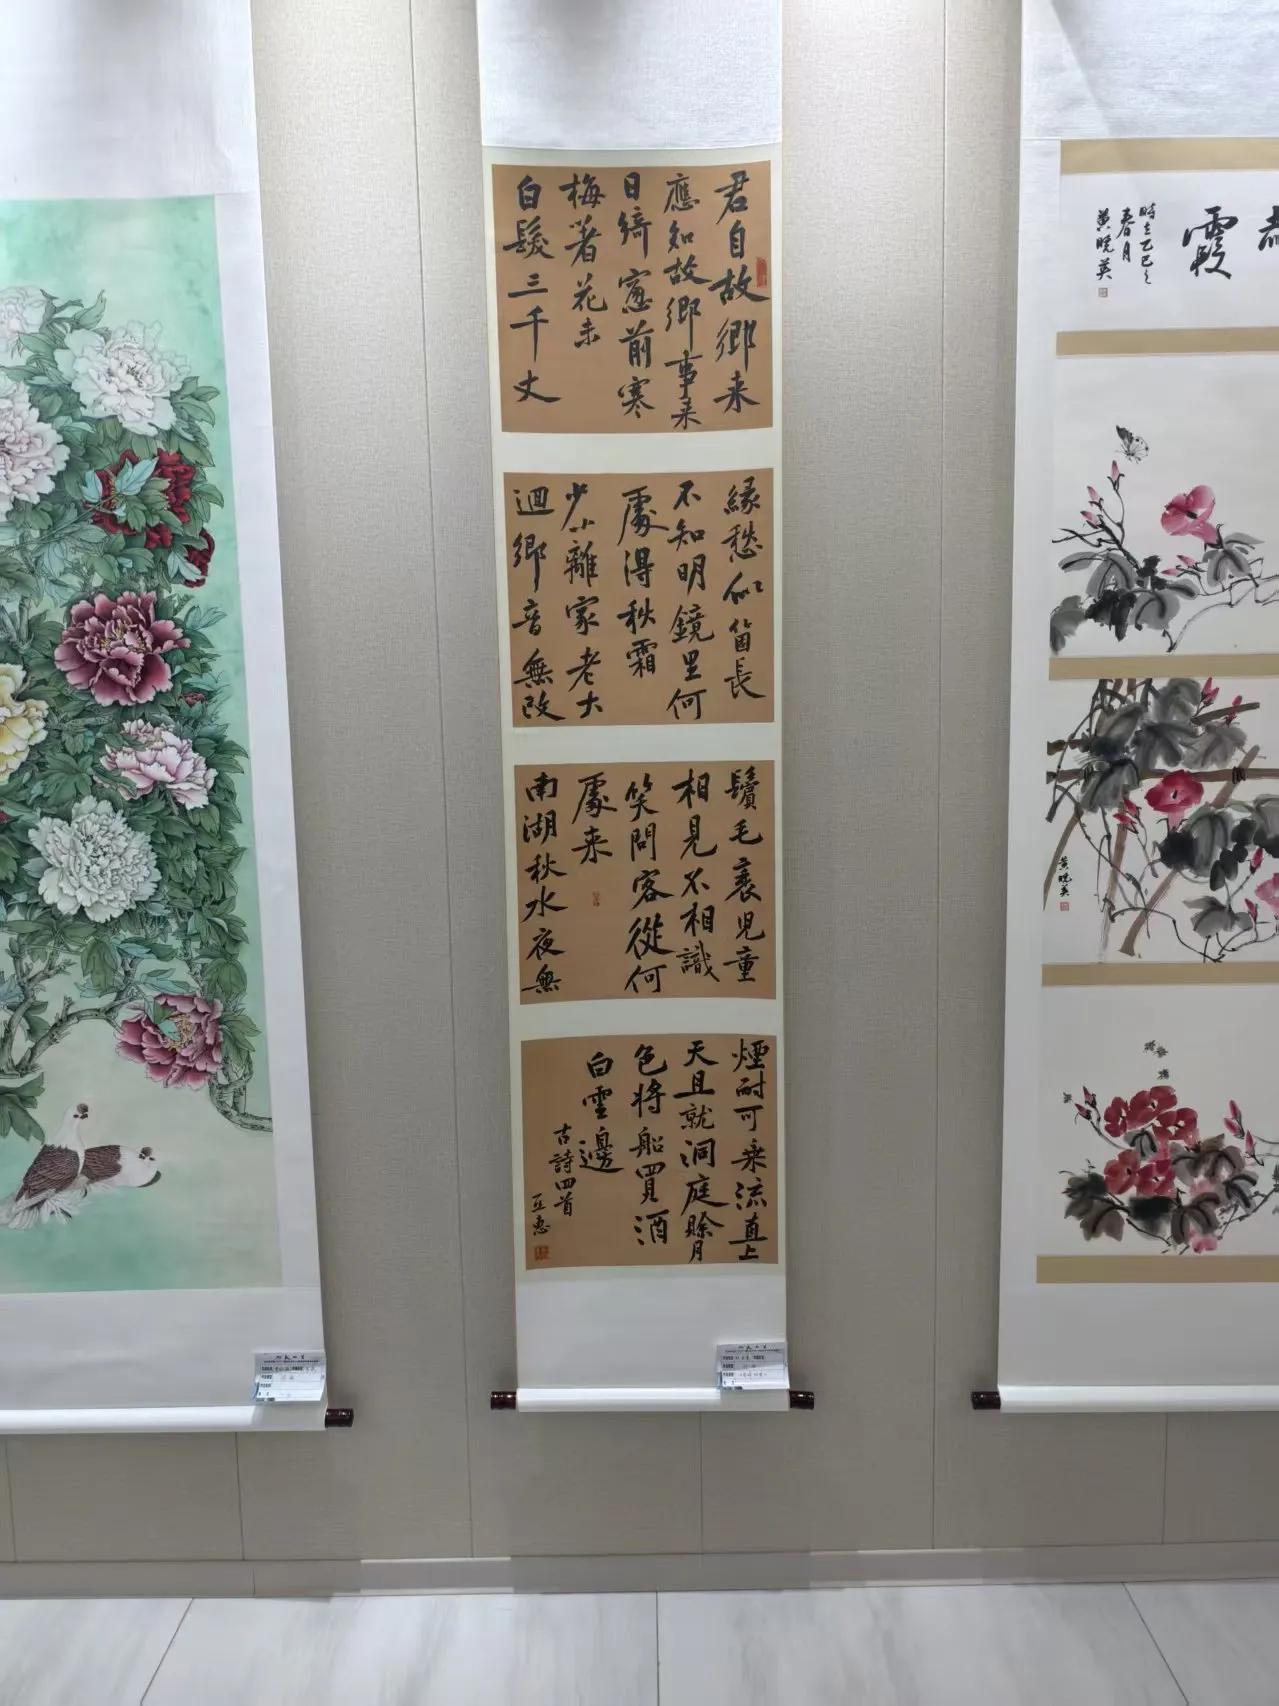 君自故鄉来
應知故鄉事来
日綺窓前寒
梅著花未
白髮三千丈
緣愁似箇長
不知明鏡里何
處得秋霜
少小離家老大
迴鄉音無改
鬢毛衰児童
相見不相識
笑問客從何
處来
南湖秋水夜無
煙耐可乘流直上
天且就洞庭賒月
色將船買酒
白雲邊
古詩四首
霞
時在乙巳之
春月
黄晓英
黄晓英